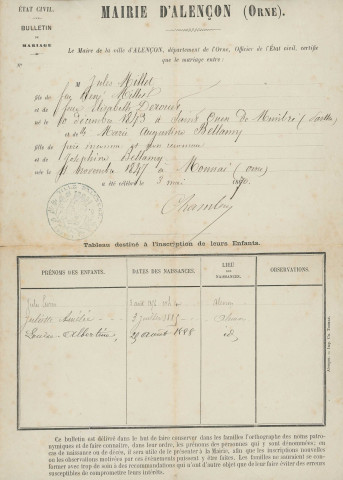 ÉTAT CIVIL.
BULLETIN
DE
MARIAGE
MAIRIE D'ALENÇON (ORNE).
Le Maire de la ville d'ALENÇON, département de l'Orne, Officier de l'État civil, certifie
que le mariage entre :
N°
M Jules Millet
fils de feu Millet
et de feue Elisabeth
né 10 décembre 1843 à
et Marie Augustine Bellamy
fille de
et de Joséphine Bellamy
née 11 novembre 1847 à Monnai (Orne)
a été célébré le 3 mai
Tableau destiné à l'inscription de leurs Enfants.
PRÉNOMS DES ENFANTS. DATES DES NAISSANCES. LIEU
DES
NAISSANCES. OBSERVATIONS.
Jules
Juliette 3 juillet
Louise Albertine 29 août 1888 id
Alençon. — Imp.
Ce bulletin est délivré dans le but de faire conserver dans les familles l'orthographe des noms patro-
nymiques et de faire connaître, dans leur ordre, les prénoms des personnes qui y sont dénommées; en
cas de naissance ou de décès, il sera utile de le présenter à la Mairie, afin que les inscriptions nouvelles
ou les observations motivées par ces événements puissent y être faites. Les familles ne sauraient se con-
former avec trop de soin à des recommandations qui n'ont d'autre objet que de leur faire éviter des erreurs
susceptibles de compromettre leurs intérêts.